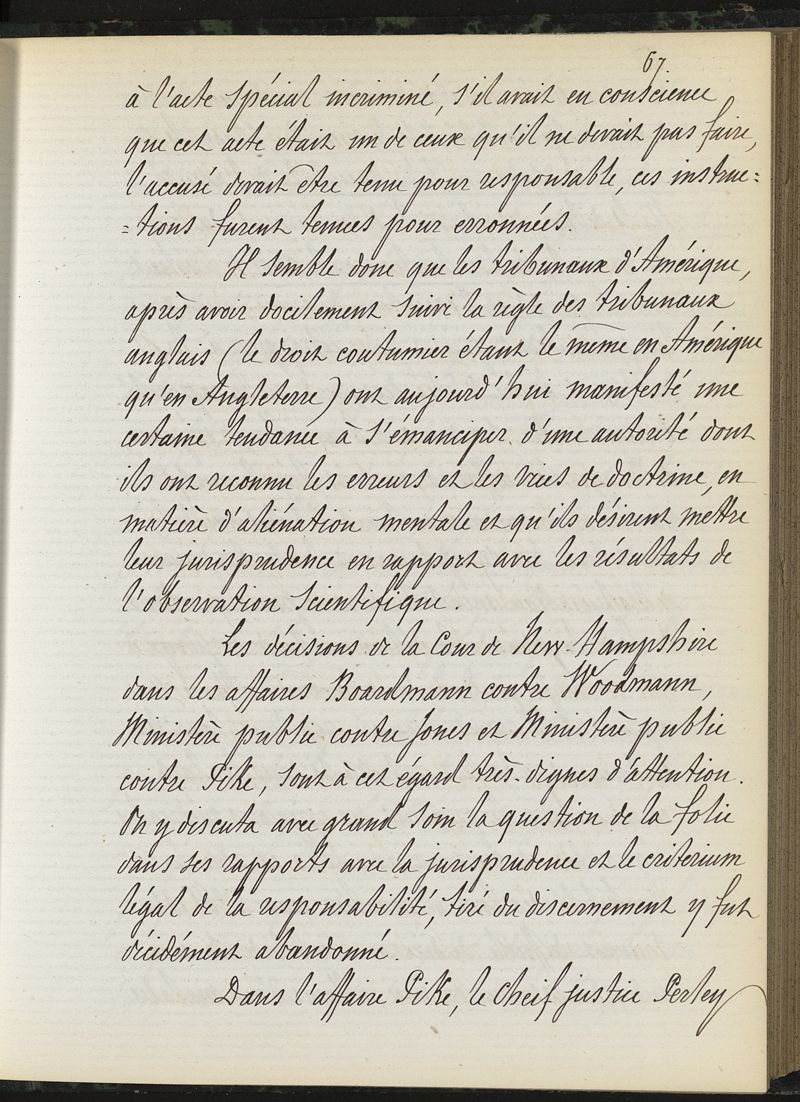 67
à l'acte spécial incriminé, s'il avait eu conscience
que cet acte était un de ceux qu'il ne devait pas faire,
l'accusé devait être tenu pour responsable, ces instruc=
=tions furent tenues pour erronnées.
Il semble donc que les tribunaux d'Amérique,
après avoir docilement suivi la règle des tribunaux
anglais (le droit coutumier étant le même en Amérique
qu'en Angleterre) ont aujourd'hui manifesté une
certaine tendance à s'émanciper d'une autorité dont
ils ont reconnu les erreurs et les vices de doctrine, en
matière d'aliénation mentale et qu'ils désirent mettre
leur jurisprudence en rapport avec les résultats de
l'observation scientifique.
Les décisions de la Cour de New-Hampshire
dans les affaires Boardmann contre Woodmann,
Ministère public contre Jones et Ministère public
contre Pike, sont à cet égard très-dignes d'attention.
On y discuta avec grand soin la question de la folie
dans ses rapports avec la jurisprudence et le criterium
légal de la responsabilité, tiré du discernement y fut
décidément abandonné.
Dans l'affaire Pike, le Cheif justice Perley